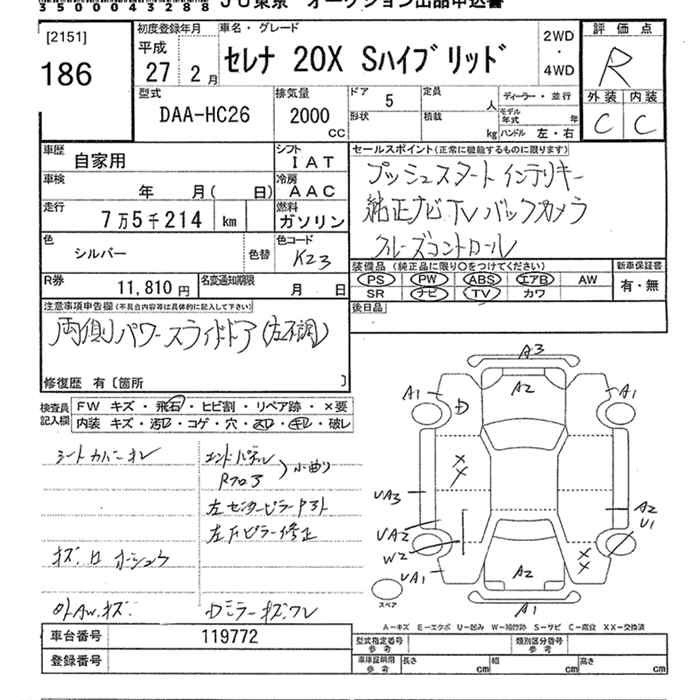 3 5 0 0 0 4 3 2 8 8
JU東京 オークション出品申込書
[2151]
186
初度登録年月
平成
27 2月
車名・グレード
セレナ 20X Sハイブリッド
2WD
・
4WD
評価点
R
外装 内装
C C
型式
DAA-HC26
排気量
2000
CC
ドア 5
形状
定員 人
積載 kg
ディーラー・並行
モデル年式 年
ハンドル 左・右
車歴
自家用
シフト
I A T
車検
年 月( 日)
冷房
A A C
走行
7万5千214 km
燃料
ガソリン
色
シルバー
色替
色コード
K23
R券
11,810円
名変通知期限
月 日
セールスポイント(正常に機能するものに限ります)
プッシュスタート インテリキー
純正ナビ TV バックカメラ
クルーズコントロール
装備品(純正品に限り○をつけてください)
PS PW ABS エアB AW
SR ナビ TV カワ
新車保証書
有・無
後日品
注意事項申告欄(不具合内容等は具体的に記入して下さい)
両側パワースライドドア(左不調)
修復歴 有〔箇所 〕
検査員記入欄
FW キズ・飛石・ヒビ割・リペア跡・×要
内装 キズ・汚レ・コゲ・穴・スレ・キレ・破レ
シートカバーオレ
エンドパネル
Rフロア
小曲り
左センターピラー
左Fピラー修正
外AW.キズ
Dミラーキズワレ
A3
A1 A2 A1
D
××
UA3
A2
U1
UA2
W2
UA1
A2
××
A1
スペア
A-キズ E-エクボ U-凹み W-補修跡 S-サビ C-腐食 XX-交換済
車台番号 119772
登録番号
型式指定番号
参考
類別区分番号
参考
車庫証明用
参考
長さ cm 幅 cm 高さ cm